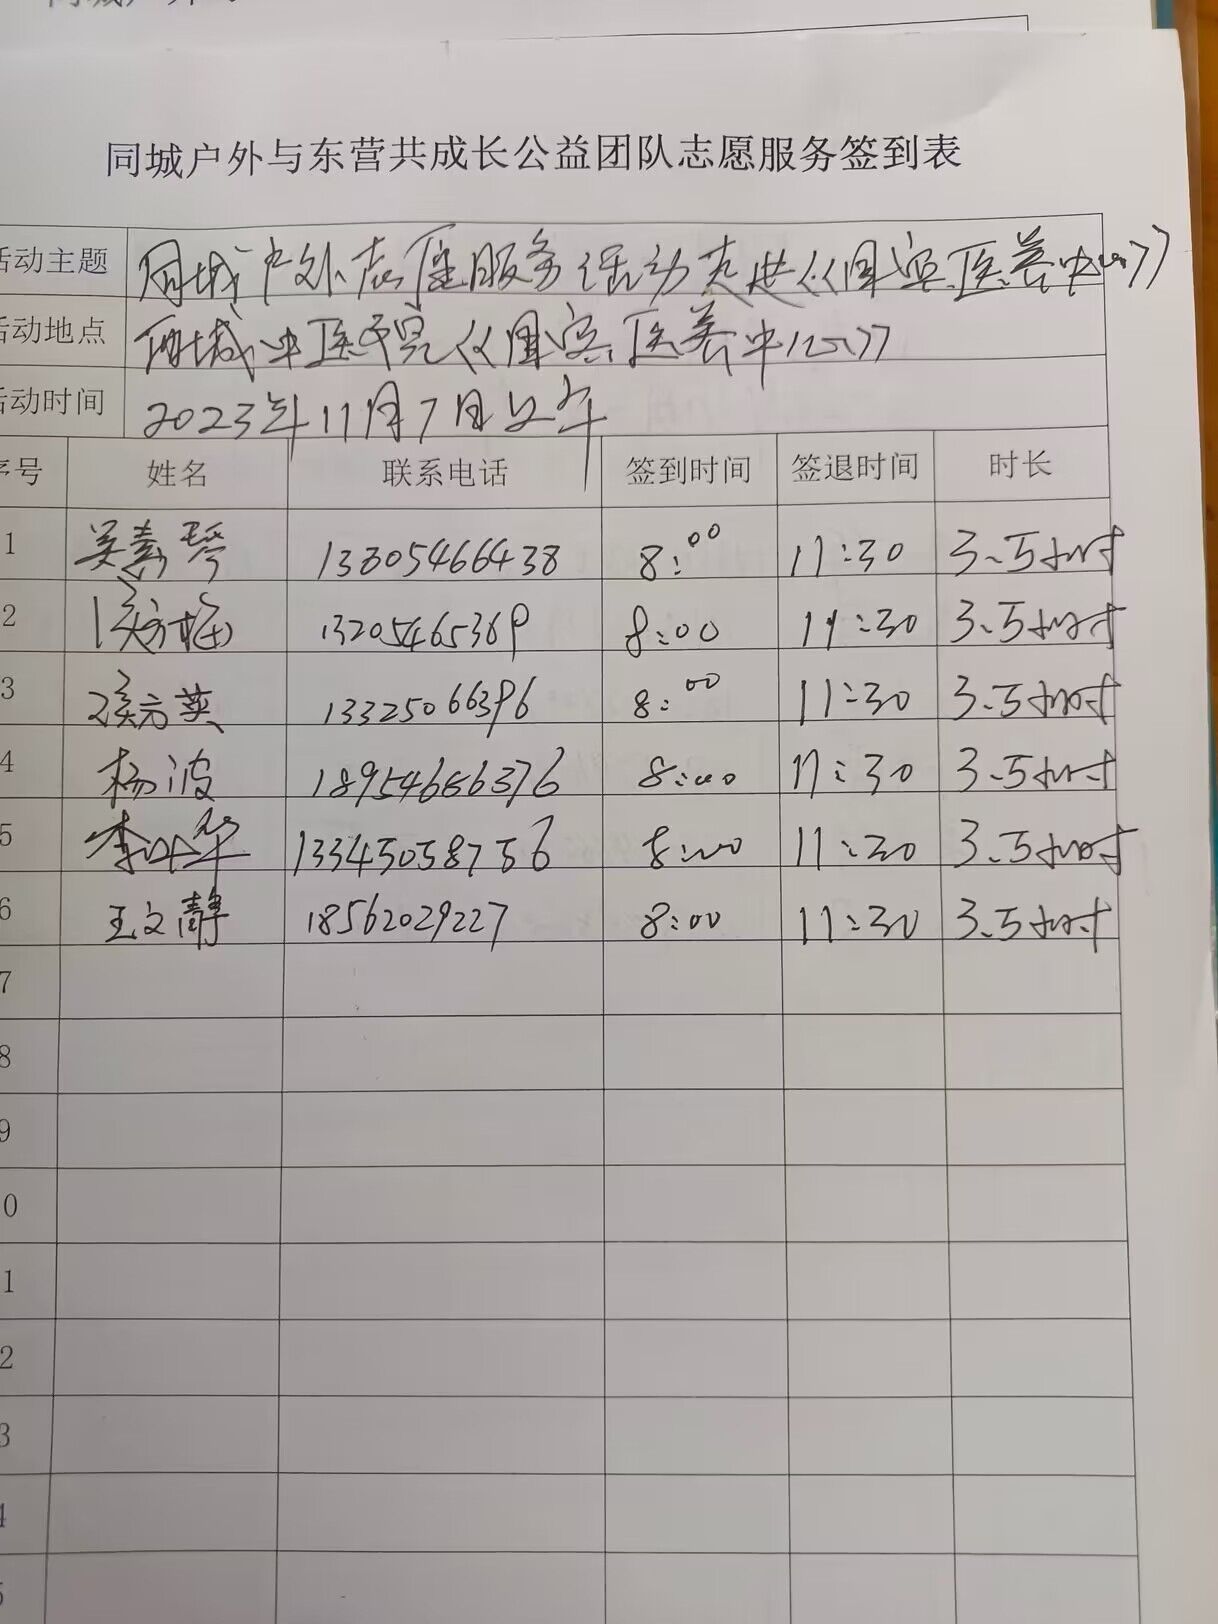 同城户外与东营共成长公益团队志愿服务签到表
活动主题 同城户外志愿服务活动走进《国宾医养中心》
活动地点 西城中医院《国宾医养中心》
活动时间 2023年11月7日上午
序号 姓名 联系电话 签到时间 签退时间 时长
1 吴素琴 13305466438 8:00 11:30 3.5小时
2 侯方梅 13205465369 8:00 11:30 3.5小时
3 侯方英 13325066396 8:00 11:30 3.5小时
4 杨波 18954656376 8:00 11:30 3.5小时
5 李叶华 13345058756 8:00 11:30 3.5小时
6 王文静 18562029227 8:00 11:30 3.5小时
7
8
9
0
1
2
3
4
5